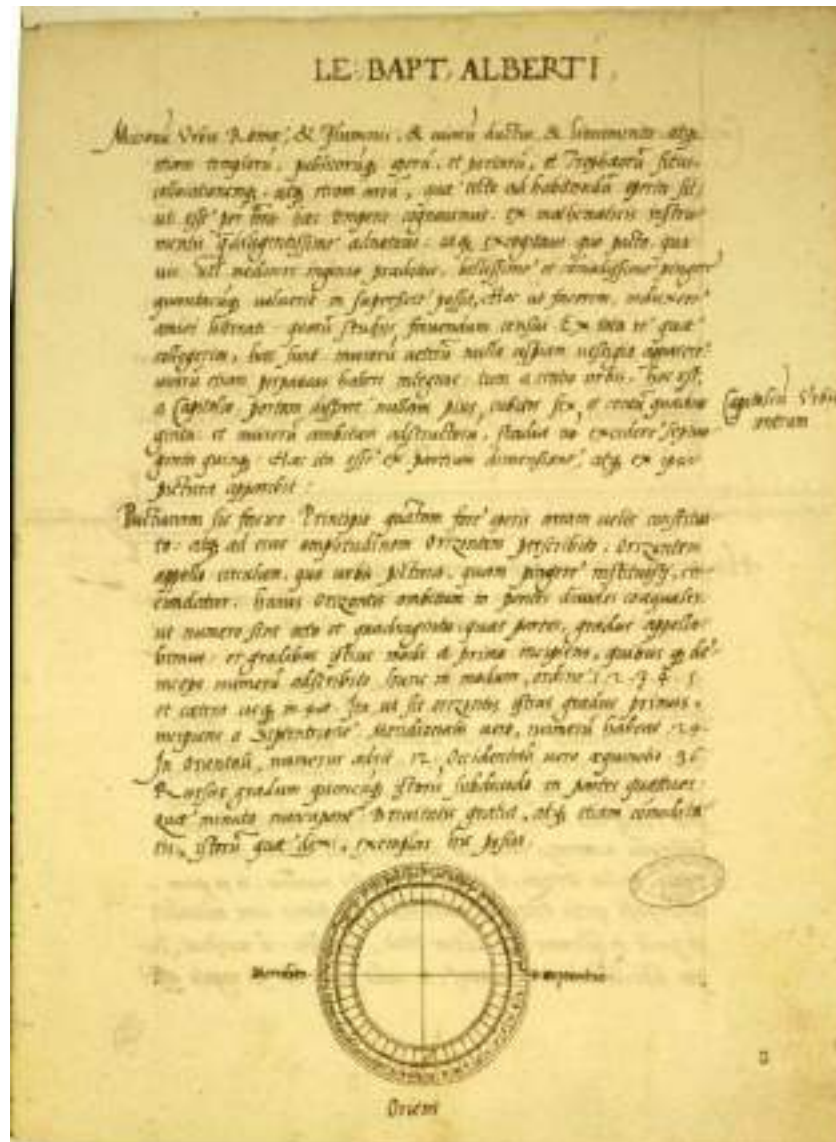 LE. BAPT. ALBERTI.
Murorũ Urbis Romę, & Fluminis, & viarũ ductus, & lineamenta atq
etiam templorũ, publicorũq operũ, et portarũ, et Tropheorũ situs
collocationemq, atq etiam aream, quae tecto ad habitandũ operta sit
ut esse per haec tempora cognovimus. ex mathematicis instru
mentis q diligentissime adnotavi. atq excogitavi quo pacto, qui
vis vel mediocri ingenio praeditus, bellissime et cõmodissime pingere
quantacũq voluerit in superficie possit, Hac ut facerem, induxere
amici litterati quorũ studiis favendum censui. Ex tota re quae
collegerim, haec sunt murorũ veterũ nulla uspiam vestigia apparere
viarũ etiam perpaucas haberi integras. tum a centro urbis, hoc est,
a Capitolio portam distare nullam plus, cubitis sex, et centũ quadra
ginta: et murorũ ambitum adstructorũ, stadia nõ excedere septua
ginta quinq. Haec ita esse ex partium dimensione, atq ex ipsa
pictura apparebit.
Capitoliũ Urbis
centrum
Picturam sic facito. Principio quãtam fore operis aream velis constitui
to. atq ad eius amplitudinem Orizontem perscribito. Orizontem
appello circulum, quo urbis pictura, quam pingere institueris, cir
cundatur. huius Orizontis ambitum in partes divides coaequales
ut numero sint octo et quadraginta quas partes, gradus appella
bimus. et gradibus istius modi a primo incipiens, quibus q de
inceps numerũ adscribito hunc in modum, ordine 1. 2. 3. 4. 5
et caetera usq in 48. Ita ut sit orizontis istius gradus primus,
incipiens a Septentrione. Meridionalis vero, numerũ habeat 24.
In Orientali, numerus adsit 12, Occidentalis vero aequinoctio 36
Rursus gradum quemcũq istorũ subdivido in partes quattuor
quae minuta nuncupantur Brevitatis gratia, atq etiam cõmodita
tis, istorũ quae dixi, exemplar hic posui.
Meridies
Septentrio
Oriens